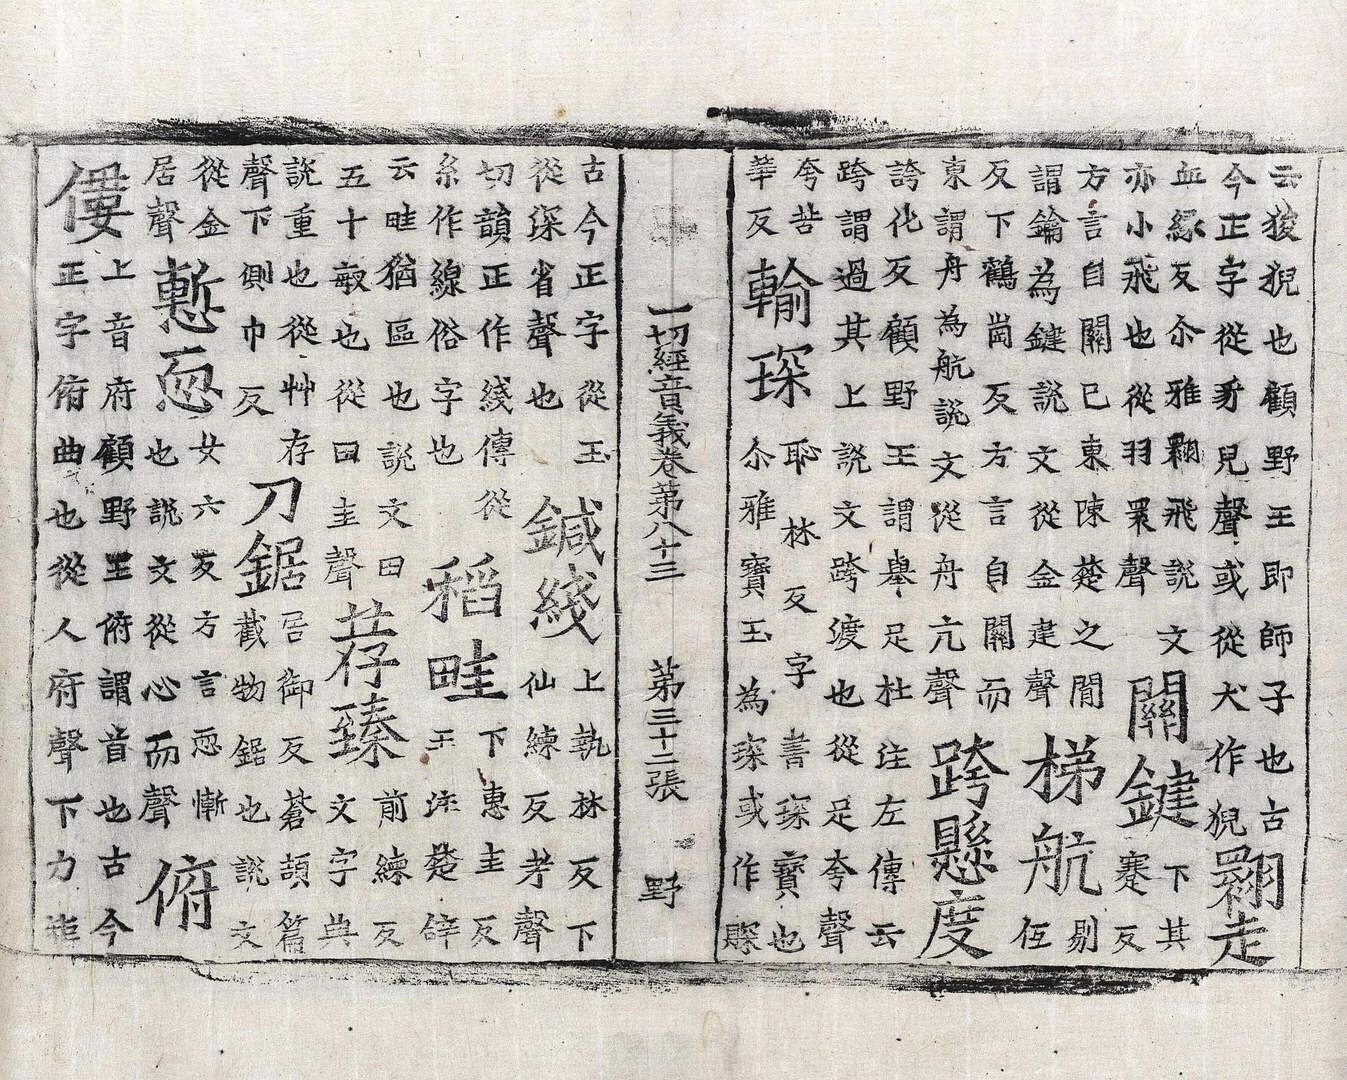 云狻猊也顧野王即師子也古
今正字從豸兒聲或從犬作猊
翾走
血緣反尒雅翾飛說文
亦小飛也從羽睘聲
關鍵
下其
蹇反
方言自關已東陳楚之閒
謂鑰為鍵說文從金建聲
梯航
剔
仾
反下鶴崗反方言自關而
東謂舟為航說文從舟亢聲
跨懸度
誇化反顧野王謂舉足杜注左傳云
跨謂過其上說文跨渡也從足夸聲
夸苦
華反
輸琛
耻林反字書琛寶也
尒雅寶玉為琛或作賝
一切經音義卷第八十三 第三十二張 野
古今正字從玉
從深省聲也
鍼綫
上執林反下
仙練反考聲
切韻正作綫傳從
糸作線俗字也
稻畦
下惠圭反
王注楚辝
云畦猶區也說文田
五十畝也從田圭聲
荐臻
前練反
文字典
說重也從艸存
聲下側巾反
刀鋸
居御反蒼頡篇
截物鋸也說文
從金
居聲
慙恧
女六反方言恧慚
也說文從心而聲
俯
僂
上音府顧野王俯謂音也古今
正字俯曲也從人府聲下力